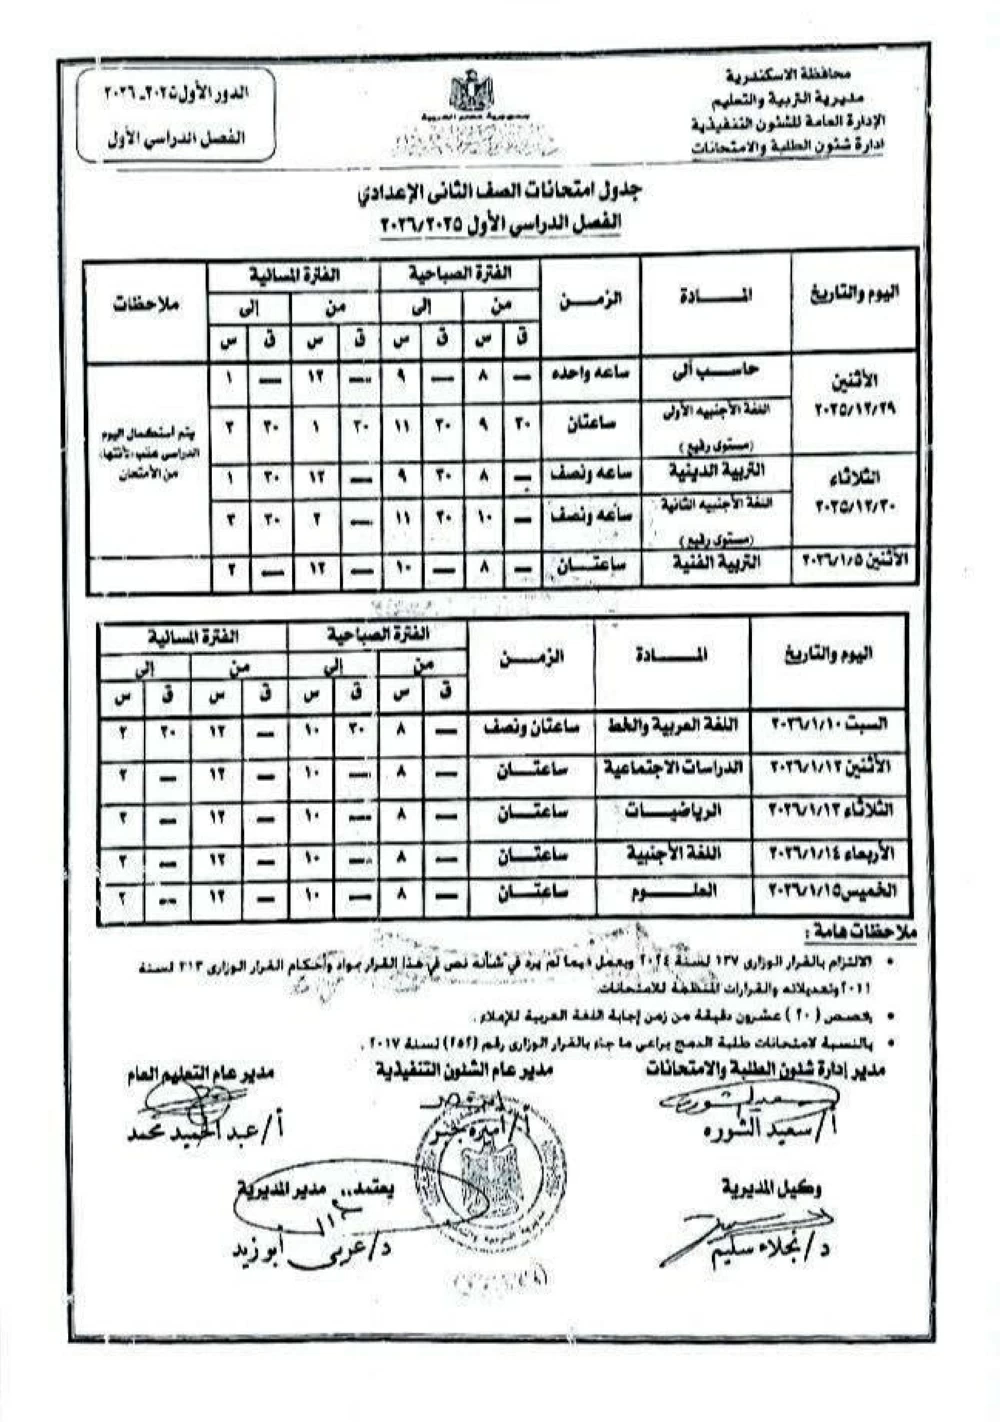 محافظة الاسكندرية
مديرية التربية والتعليم
الإدارة العامة للشئون التنفيذية
ادارة شئون الطلبة والامتحانات
جمهورية مصر العربية
الدور الأول ٢٠٢٥ـ ٢٠٢٦
الفصل الدراسي الأول
جدول امتحانات الصف الثانى الإعدادي
الفصل الدراسي الأول ٢٠٢٦/٢٠٢٥
اليوم والتاريخ المـــادة الزمـــن الفترة الصباحية الفترة المسائية ملاحظات
من إلى من إلى
ق س ق س ق س ق س
الأثنين ٢٠٢٥/١٢/٢٩ حاســب ألى ساعه واحده — ٨ — ٩ — ١٢ — ١
اللغة الأجنبيه الأولى (مستوى رفيع) ساعتان ٣٠ ٩ ٣٠ ١١ ٣٠ ١ ٣٠ ٣
الثلاثاء ٢٠٢٥/١٢/٣٠ التربية الدينية ساعه ونصف — ٨ ٣٠ ٩ — ١٢ ٣٠ ١
اللغة الأجنبيه الثانية (مستوى رفيع) ساعه ونصف — ١٠ ٣٠ ١١ — ٢ ٣٠ ٣
يتم أستكمال اليوم الدراسى عقب الانتهاء من الأمتحان
الأثنين ٢٠٢٦/١/٥ التربية الفنية ساعتــان — ٨ — ١٠ — ١٢ — ٢
اليوم والتاريخ المـــادة الزمـــن الفترة الصباحية الفترة المسائية
من إلى من إلى
ق س ق س ق س ق س
السبت ٢٠٢٦/١/١٠ اللغة العربية والخط ساعتان ونصف — ٨ ٣٠ ١٠ — ١٢ ٣٠ ٢
الأثنين ٢٠٢٦/١/١٢ الدراسات الاجتماعية ساعتــان — ٨ — ١٠ — ١٢ — ٢
الثلاثاء ٢٠٢٦/١/١٣ الرياضيــات ساعتــان — ٨ — ١٠ — ١٢ — ٢
الأربعاء ٢٠٢٦/١/١٤ اللغة الأجنبية ساعتــان — ٨ — ١٠ — ١٢ — ٢
الخميس ٢٠٢٦/١/١٥ العلــوم ساعتــان — ٨ — ١٠ — ١٢ — ٢
ملاحظات هامة :
• الالتزام بالقرار الوزارى ١٣٧ لسنة ٢٠٢٤ ويعمل فيما لم يرد في شأنة نص في هذا القرار بمواد وأحكام القرار الوزارى ٣١٣ لسنة
٢٠١١ وتعديلاته والقرارات المنظمة للامتحانات
• يخصص (٢٠) عشرون دقيقة من زمن إجابة اللغة العربية للإملاء .
• بالنسبة لامتحانات طلبة الدمج يراعى ما جاء بالقرار الوزارى رقم (٢٥٢) لسنة ٢٠١٧ .
مدير إدارة شئون الطلبة والامتحانات مدير عام الشئون التنفيذية مدير عام التعليم العام
أ/ سعيد الشوره أ/ أميرة جبر أ/ عبد الحميد محمد
وكيل المديرية يعتمد.. مدير المديرية
د/ نجلاء سليم د/ عربى أبو زيد